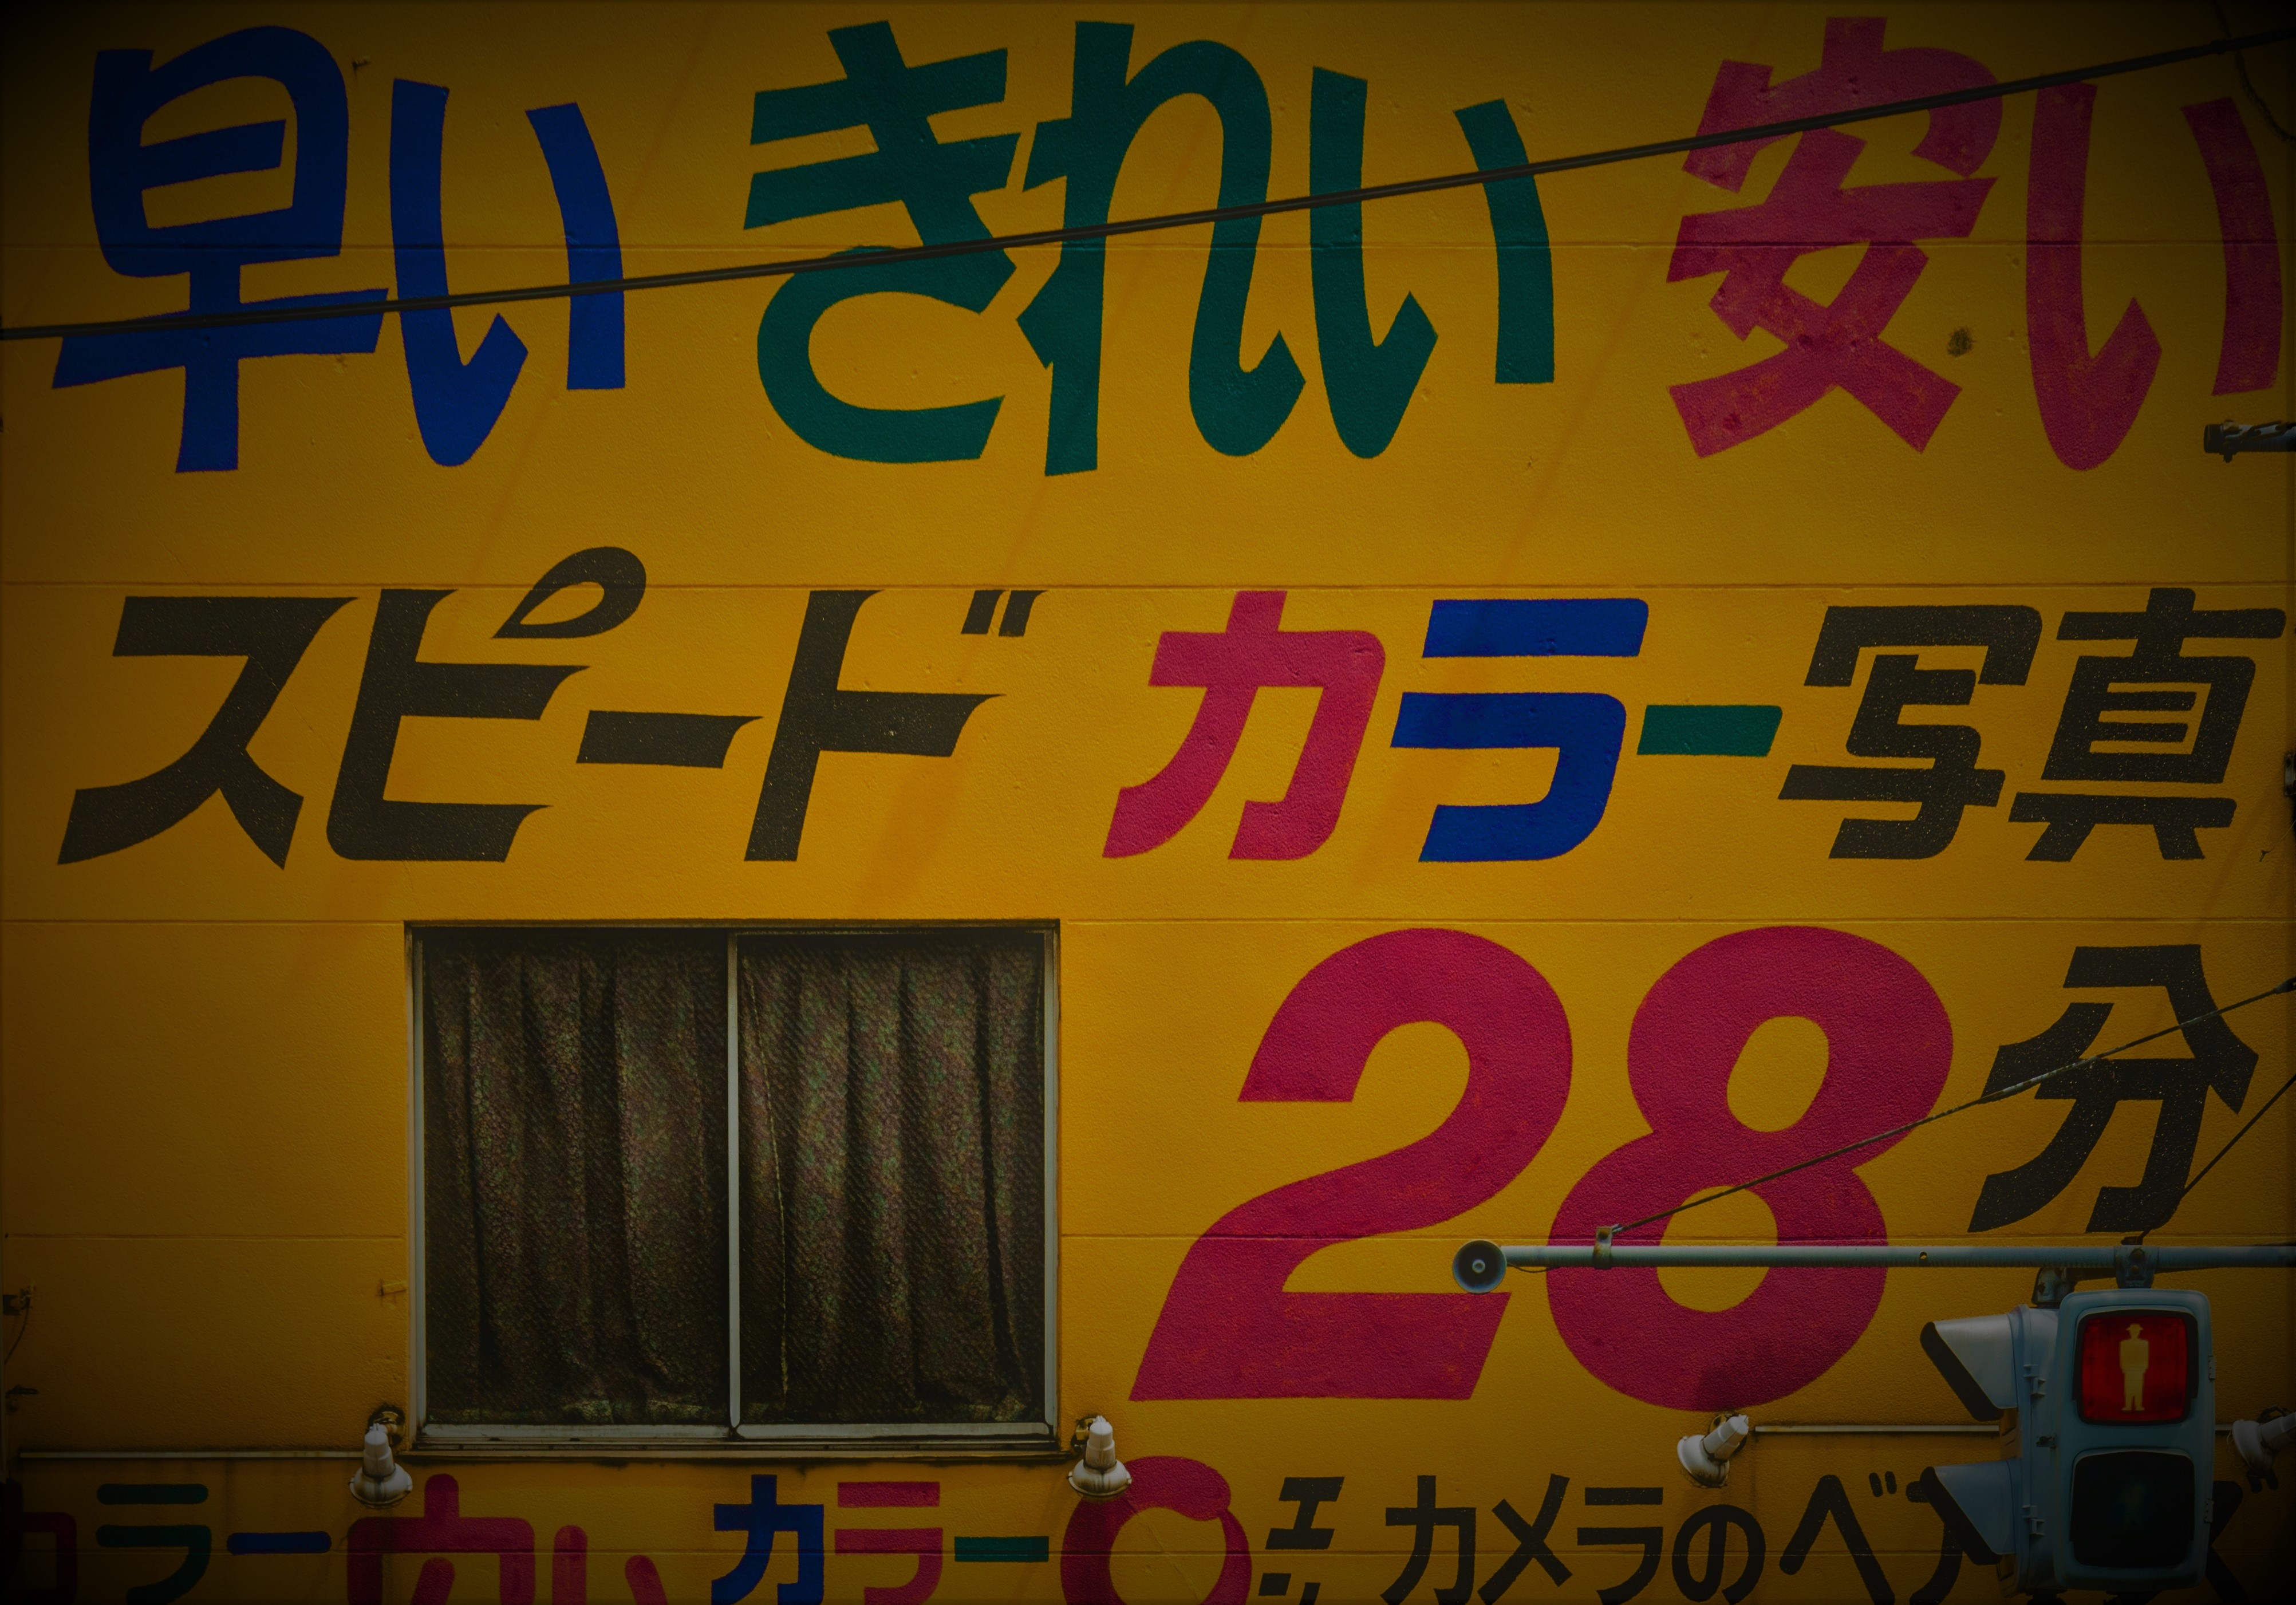 早い きれい 安い
スピード カラー写真
28分
カラー カラー カメラのベ